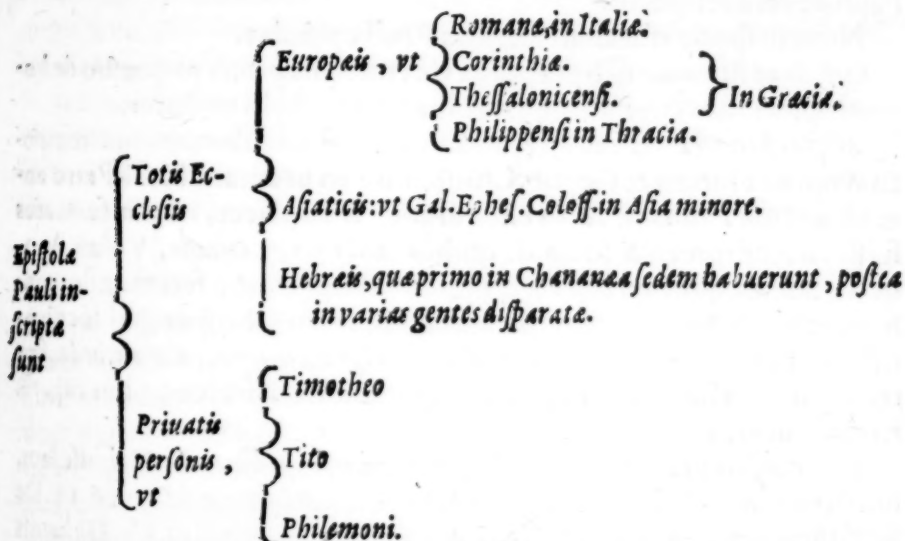 Epistolæ
Pauli in-
scriptæ
sunt
Totis Ec-
clesiis
Europæis, vt
Romanæ, in Italiæ.
Corinthiæ.
Thessalonicensi.
In Græciæ.
Philippensi in Thracia.
Asiaticis: vt Gal. Ephes. Coloss. in Asia minore.
Hebræis, quæ primo in Chananæa sedem habuerunt, postea
in varias gentes disparatæ.
Priuatis
personis,
vt
Timotheo
Tito
Philemoni.